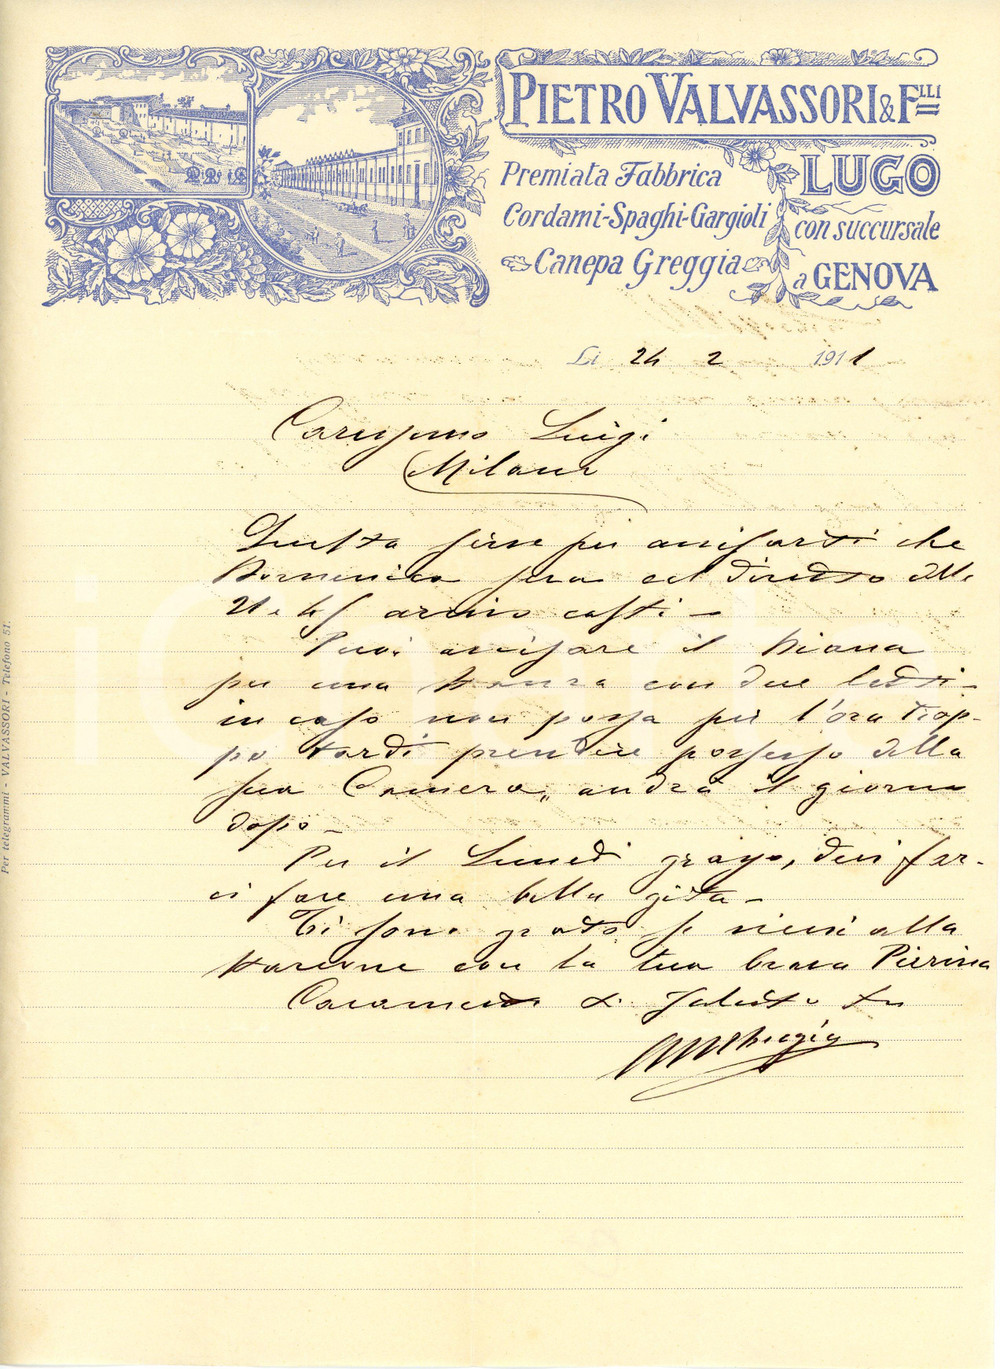 PIETRO VALVASSORI & F.LLI
LUGO
Premiata Fabbrica
Cordami-Spaghi-Gargioli
Canepa Greggia
con succursale
a GENOVA
Li 24 2 1911
Carissimo Luigi
Milano
Questa serve per avvisarti che
Domenica sera col diretto delle
21 e 45 arrivo costì -
Puoi avvisare il Diana
per una stanza con due letti -
in caso non possa per l'ora trop-
po tardi prendere possesso della
sua Camera, andrà il giorno
dopo -
Per il Lunedì grasso, devi far-
ci fare una bella gita -
Ti sono grato se vieni alla
stazione con la tua brava Pierina
Caramente ti saluto tuo
Per telegrammi - VALVASSORI - Telefono 51.